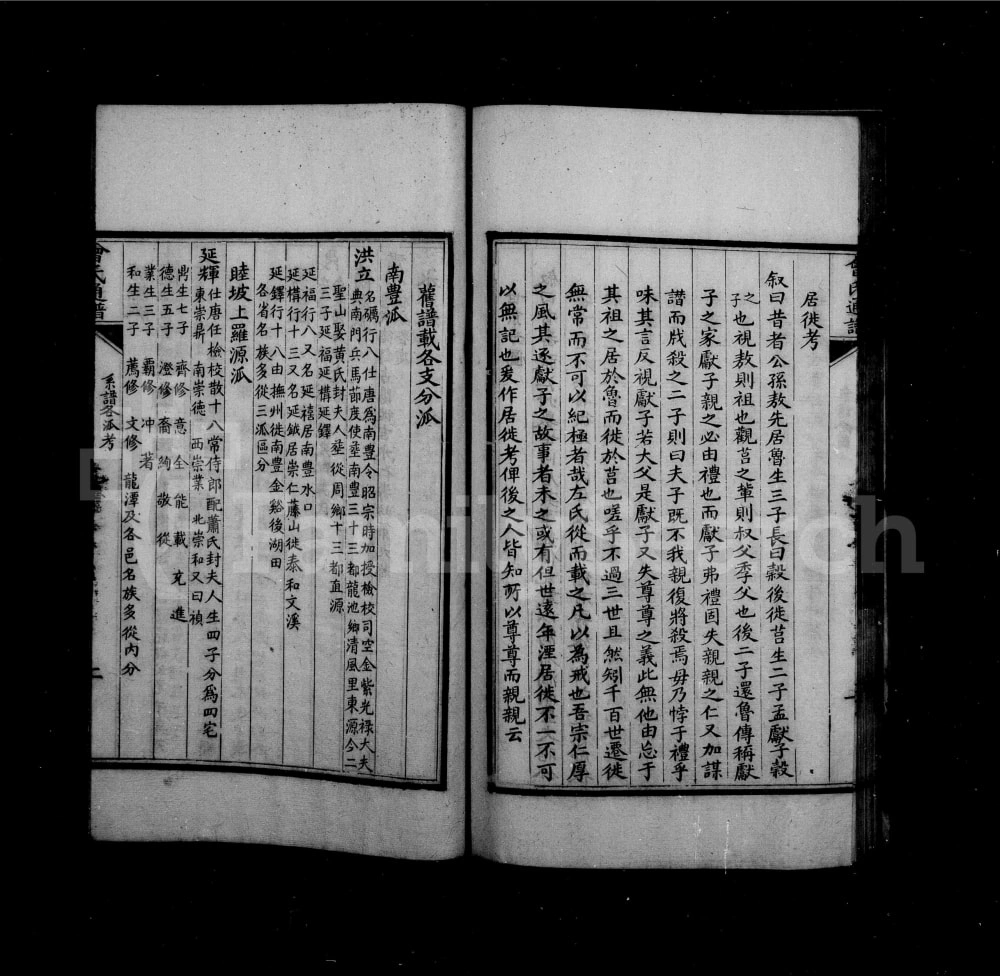 居徙考
叙曰昔者公孫敖先居魯生三子長曰穀後徙莒生二子孟獻子穀
之子也視敖則祖也觀莒之輩則叔父季父也後二子還魯傳稱獻
子之家獻子親之必由禮也而獻子弗禮固失親親之仁又加謀
譖而戕殺之二子則曰夫子既不我親復將殺焉毋乃悖于禮乎
味其言反視獻子若大父是獻子又失尊尊之義此無他由忘于
其祖之居於魯而徙於莒也嗟乎不過三世且然矧千百世遷徙
無常而不可以紀極者哉左氏從而載之凡以為戒也吾宗仁厚
之風其逐獻子之故事者未之或有但世遠年湮居徙不一不可
以無記也爰作居徙考俾後之人皆知所以尊尊而親親云
舊譜載各支分派
南豐派
洪立 名礪行八仕唐為南豐令昭宗時加授檢校司空金紫光祿大夫
典南門兵馬節度使塟南豐三十三都龍池鄉清風里東源今二
聖山娶黃氏封夫人塟從周鄉十三都直源
三子延福延構延鐸
延福行八又名延禧居南豐水口
延構行十三又名延鉞居崇仁藤山徙泰和文溪
延鐸行十八由撫州徙南豐金谿後湖田
各省名族多從三派區分
睦坡上羅源派
延輝 仕唐任檢校散十八常侍郎配蕭氏封夫人生四子分爲四宅
東崇鼎 南崇德 西崇業 北崇和又曰禎
鼎生七子 齊修 意 全 能 載 克 進
德生五子 澄修 裔 絢 敬 從
業生三子 霸修 冲 著
和生二子 薦修 文修 龍潭及各邑名族多從內分
曾氏通譜
系譜各派考
二
FamilySearch